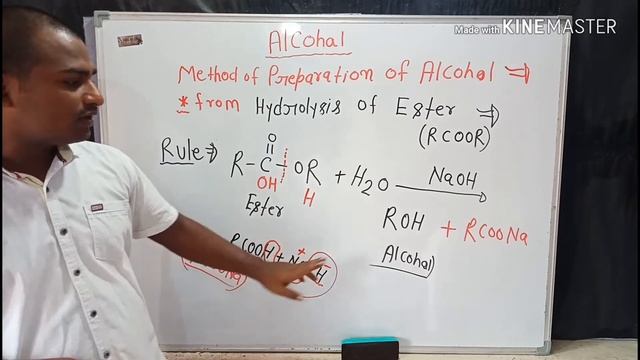 Made with KINEMASTER
Alcohal
Method of Preparation of Alcohol ⇒
* from Hydrolysis of Ester ⇒
(RCOOR)
Rule⇒
O
R-C-OR + H₂O NaOH
OH H
Ester
ROH + RCOONa
Alcohal
RCOOH +